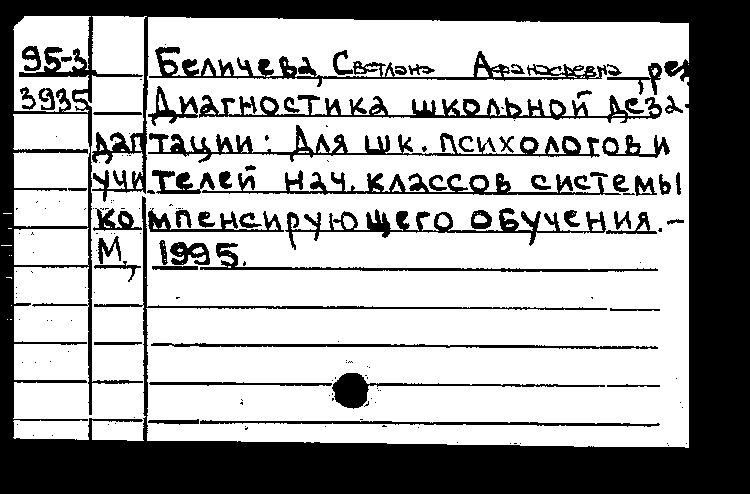 95-3 Беличева, Светлана Афанасьевна, ред
3935 Диагностика школьной деза-
даптации: Для шк. психологов и
учителей нач. классов системы
компенсирующего обучения. –
М., 1995.